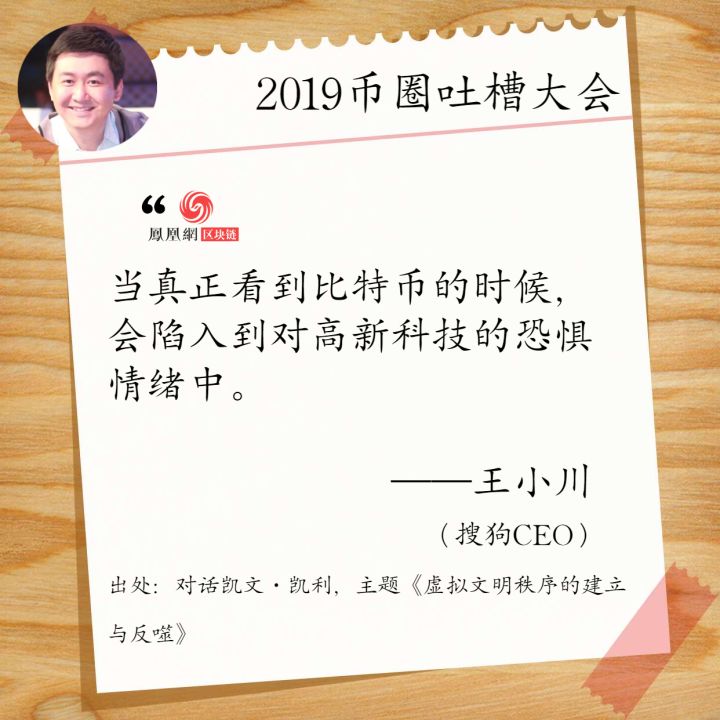 2019币圈吐槽大会
“
鳳凰網区块链
当真正看到比特币的时候，
会陷入到对高新科技的恐惧
情绪中。
——王小川
（搜狗CEO）
出处：对话凯文·凯利，主题《虚拟文明秩序的建立
与反噬》